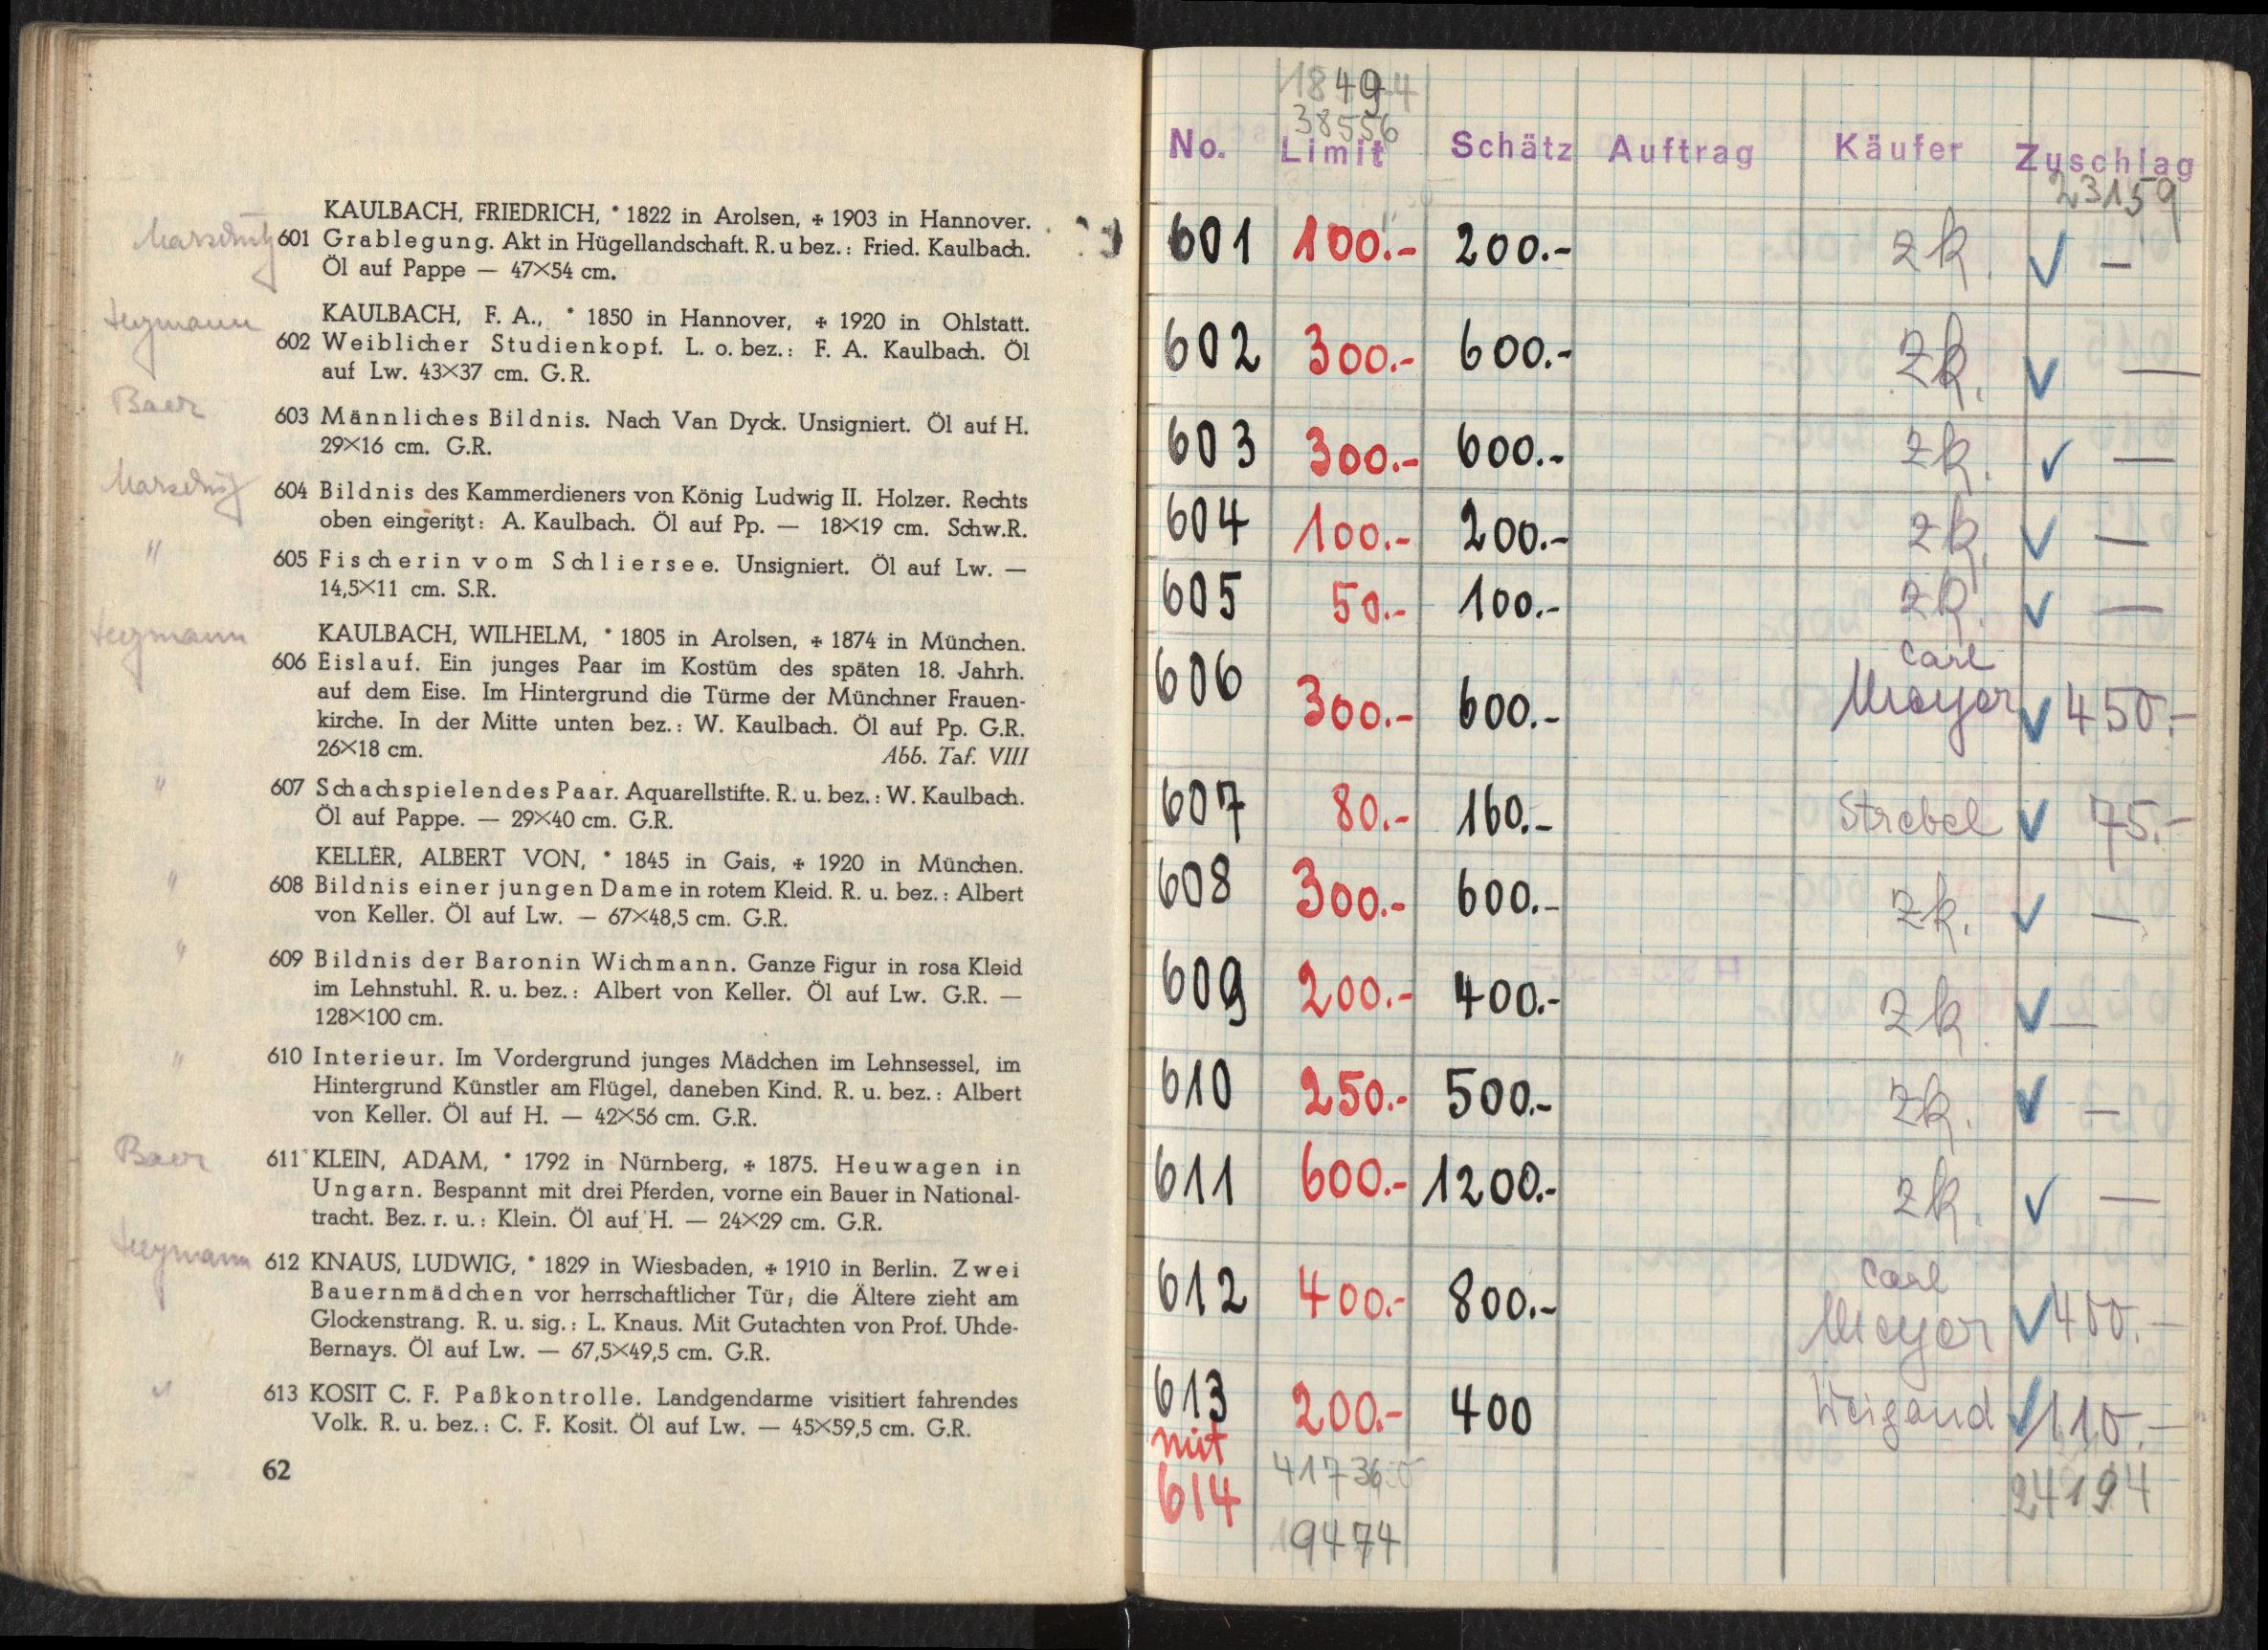 KAULBACH, FRIEDRICH, * 1822 in Arolsen, ✠ 1903 in Hannover.
601 Grablegung. Akt in Hügellandschaft. R. u bez.: Fried. Kaulbach.
Öl auf Pappe — 47×54 cm.
KAULBACH, F. A., * 1850 in Hannover, ✠ 1920 in Ohlstatt.
602 Weiblicher Studienkopf. L. o. bez.: F. A. Kaulbach. Öl
auf Lw. 43×37 cm. G. R.
Baer
603 Männliches Bildnis. Nach Van Dyck. Unsigniert. Öl auf H.
29×16 cm. G.R.
604 Bildnis des Kammerdieners von König Ludwig II. Holzer. Rechts
oben eingeritzt: A. Kaulbach. Öl auf Pp. — 18×19 cm. Schw.R.
" 605 Fischerin vom Schliersee. Unsigniert. Öl auf Lw. —
14,5×11 cm. S.R.
KAULBACH, WILHELM, * 1805 in Arolsen, ✠ 1874 in München.
606 Eislauf. Ein junges Paar im Kostüm des späten 18. Jahrh.
auf dem Eise. Im Hintergrund die Türme der Münchner Frauen-
kirche. In der Mitte unten bez.: W. Kaulbach. Öl auf Pp. G.R.
26×18 cm. Abb. Taf. VIII
" 607 Schachspielendes Paar. Aquarellstifte. R. u. bez.: W. Kaulbach.
Öl auf Pappe. — 29×40 cm. G.R.
KELLER, ALBERT VON, * 1845 in Gais, ✠ 1920 in München.
" 608 Bildnis einer jungen Dame in rotem Kleid. R. u. bez.: Albert
von Keller. Öl auf Lw. — 67×48,5 cm. G.R.
" 609 Bildnis der Baronin Wichmann. Ganze Figur in rosa Kleid
im Lehnstuhl. R. u. bez.: Albert von Keller. Öl auf Lw. G.R. —
128×100 cm.
" 610 Interieur. Im Vordergrund junges Mädchen im Lehnsessel, im
Hintergrund Künstler am Flügel, daneben Kind. R. u. bez.: Albert
von Keller. Öl auf H. — 42×56 cm. G.R.
Baer 611 KLEIN, ADAM, * 1792 in Nürnberg, ✠ 1875. Heuwagen in
Ungarn. Bespannt mit drei Pferden, vorne ein Bauer in National-
tracht. Bez. r. u.: Klein. Öl auf H. — 24×29 cm. G.R.
612 KNAUS, LUDWIG, * 1829 in Wiesbaden, ✠ 1910 in Berlin. Zwei
Bauernmädchen vor herrschaftlicher Tür; die Ältere zieht am
Glockenstrang. R. u. sig.: L. Knaus. Mit Gutachten von Prof. Uhde-
Bernays. Öl auf Lw. — 67,5×49,5 cm. G.R.
" 613 KOSIT C. F. Paßkontrolle. Landgendarme visitiert fahrendes
Volk. R. u. bez.: C. F. Kosit. Öl auf Lw. — 45×59,5 cm. G.R.
62
38556
No. Limit Schätz Auftrag Käufer Zuschlag
23159
601 100.- 200.- zk. ✓ —
602 300.- 600.- zk. ✓ —
603 300.- 600.- zk. ✓ —
604 100.- 200.- zk. ✓ —
605 50.- 100.- zk. ✓ —
606 300.- 600.- Carl Meyer ✓ 450.-
607 80.- 160.- Strebel ✓ 75.-
608 300.- 600.- zk. ✓ —
609 200.- 400.- zk ✓ —
610 250.- 500.- zk. ✓ —
611 600.- 1200.- zk. ✓ —
612 400.- 800.- Carl Meyer ✓ 400.-
613 200.- 400 Weigand ✓ 110.-
mit
614
24194
19474